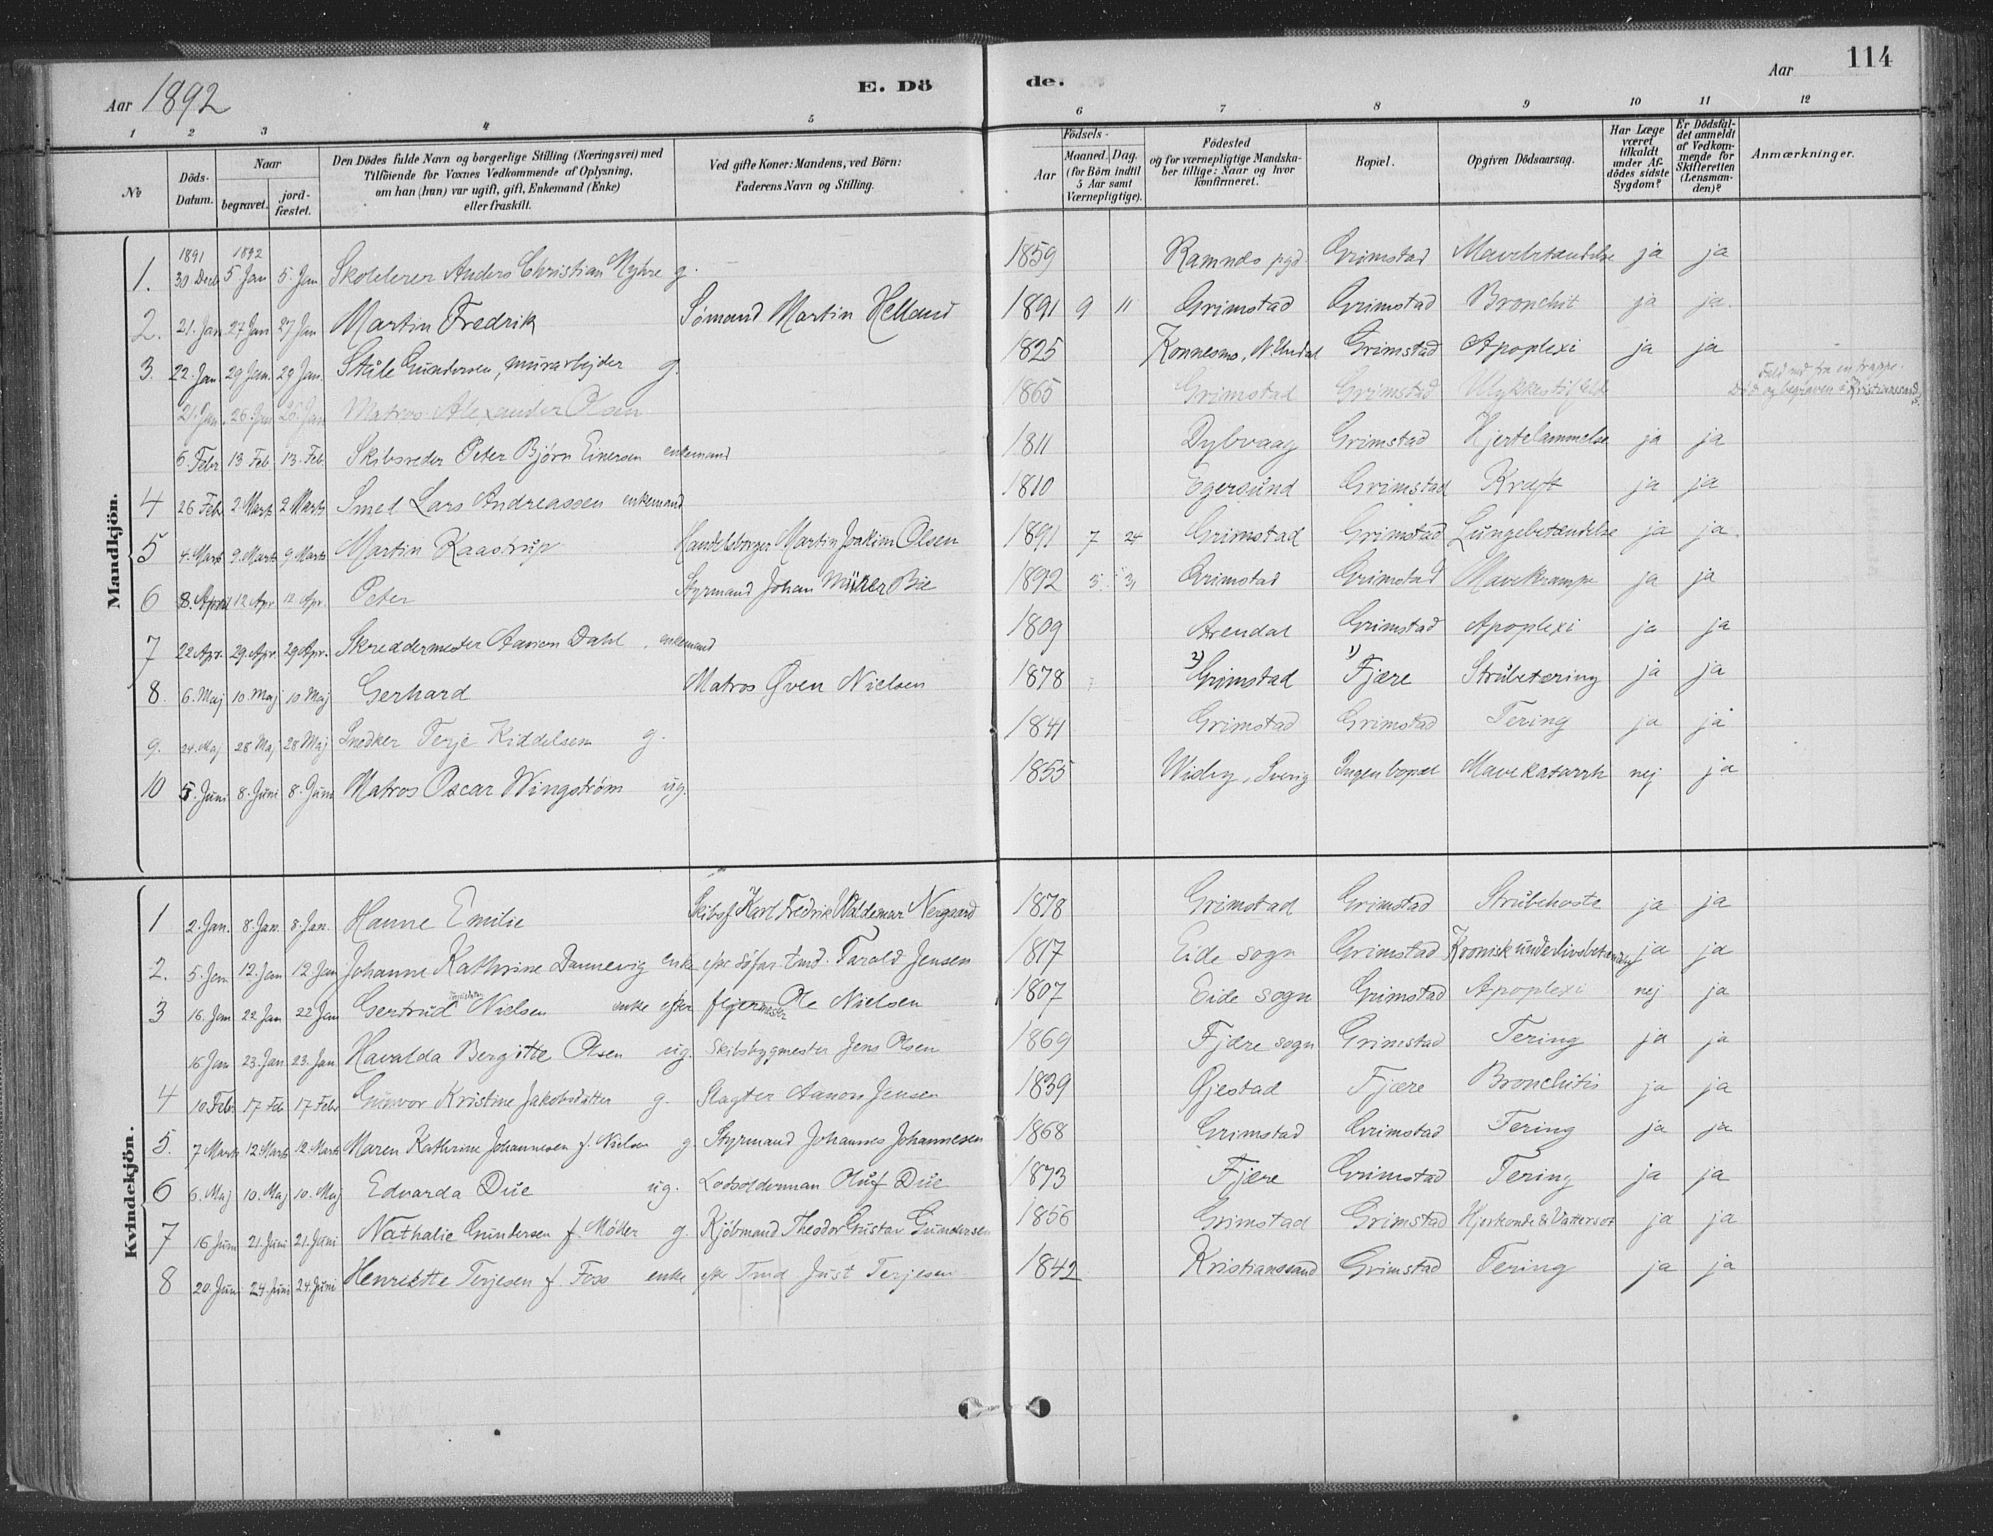 114
Aar 1892
E. Dö de.
Aar
1 2 3 4 5 6 7 8 9 10 11 12
№
Döds-Datum.
Naar begravet. jord-fæstet.
Den Dödes fulde Navn og borgerlige Stilling (Næringsvei) med Tilföiende for Voxnes Vedkommende af Oplysning, om han (hun) var ugift, gift, Enkemand (Enke) eller fraskilt.
Ved gifte Koner: Mandens, ved Börn: Faderens Navn og Stilling.
Födsels-
Aar
Maaned. Dag. (for Börn indtil 5 Aar samt Værnepligtige).
Födested og for værnepligtige Mandskaber tillige: Naar og hvor konfirmeret.
Bopæl.
Opgiven Dödsaarsag.
Har Læge været tilkaldt under Afdödes sidste Sygdom?
Er Dödsfaldet anmeldt af Vedkommende for Skifteretten (Lensmanden)?
Anmærkninger.
Mandkjön.
1891 1892
1. 30 Decb 5 Jan 5. Jan Skolelærer Anders Christian Myhre g. 1859 Ramnes pgd Grimstad Mavebetændelse ja ja
2. 21. Jan 27 Jan 27 Jan Martin Fredrik Sömand Martin Helland 1891 9 11 Grimstad Grimstad Bronchit ja ja.
3. 22. Jan 29 Jan. 29 Jan. Ståle Gundersen, murarbejder g. 1825 Konnesmo, N. Undal Grimstad Apoplexi ja ja
21. Jan. 26. Jan 26. Jan Matros Alexander Olsen 1865 Grimstad Grimstad Ulykkestilfælde Fald ned fra en trappe. Död og begraven i Kristianssand
6 Febr 13 Feb. 13. Feb. Skibsreder Peter Björn Einersen enkemand 1811 Dybvaag Grimstad Hjertelammelse ja ja
4 26 Feb 2 Marts 2 Marts Smed Lars Andreassen enkemand 1810 Egersund Grimstad Kræft ja ja
5 4. Marts 9. Marts 9 Marts Martin Kaastrup Handelsborger Martin Joakim Olsen 1891 7 24 Grimstad Grimstad Lungebetændelse ja ja.
6 8. April 12 Apr 12 Apr. Peter Styrmand Johan Müller Bie 1892 3. 31 Grimstad Grimstad Mavekrampe ja ja
7 22 Apr. 29. Apr. 29 Apr. Skreddermester Aanon Dahl. enkemand 1809 Arendal Grimstad Apoplexi ja ja
8. 6. Maj 10. Maj 10 Maj Gerhard Matros Øven Nielsen 1878 2) Grimstad 1) Fjære Strubetæring ja ja
9. 24. Maj 28 Maj 28 Maj Snedker Terje Kiddelsen g. 1841 Grimstad Grimstad Tering ja ja
10 5. Juni 8. Juni 8. Juni Matros Oscar Wingström ug. 1855 Wisby, Sverig Ingen bopæl Mavekatarrh nej ja
Kvindekjön.
1 2. Jan. 8. Jan. 8. Jan. Hanne Emilie Skibsf Karl Fredrik Waldemar Nergaard 1878 Grimstad Grimstad Strubehoste ja ja
2. 5. Jan 12. Jan 12. Jan Johanne Kathrine Dannevig enke efter söfar. tmd. Tarald Jensen 1817 Eide sogn Grimstad Kronisk underlivsbetændelse ja ja
3 16. Jan 22 Jan 22 Jan Gertrud Nielsen enke efter fejermester Ole Nielsen 1807 Eide sogn Grimstad Apoplexi nej ja
16 Jan 23. Jan 23. Jan Havalda Bergitte Olsen ug. Skibsbygmester Jens Olsen 1869 Fjære sogn Grimstad Tering ja ja
4 10 Febr 17 Feb 17 Febr Gunvor Kristine Jakobsdatter g. Slagter Aanon Jensen 1839 Øjestad Fjære Bronchitis ja ja
5. 7 Marts 12 Marts 12. Marts Maren Kathrine Johannesen f. Nielsen g. Styrmand Johannes Johannesen 1868 Grimstad Grimstad Tering ja ja
6 6. Maj 10. Maj 10. Maj Edvarda Düe ug. Lodsolderman Oluf Düe 1873 Fjære Grimstad Tering ja ja
7 16 Juni 21. Juni 21. Juni Nathalie Gundersen f. Møller g. Kjöbmand Theodor Gustav Gundersen 1856 Grimstad Grimstad Hjerteonde & Vattersot ja ja
8 20. Juni 24. Juni 24. Juni Henriette Terjesen f. Foss enke efter Tmd Just Terjesen 1842 Kristianssand Grimstad Tering ja ja